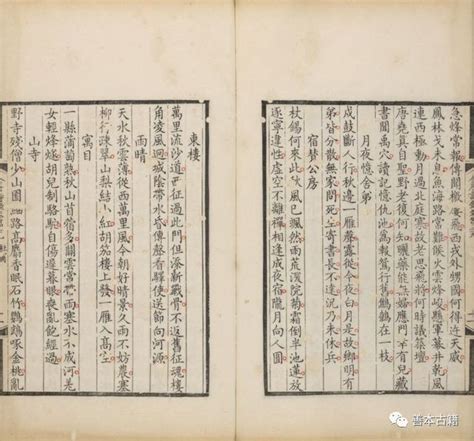 急烽常報傳聞檄屢飛西戎外甥國何得迕天威
鳳林戈未息魚海路常難候火雲烽峻懸軍幕井乾風
連西極動月過北庭寒故老思飛將何時議築壇
唐堯真自聖野老復何知曬藥能無婦應門有兒藏
書聞禹穴讀記憶仇池為報鴛行舊鷦鷯在一枝
月夜憶舍弟
戍鼓斷人行秋邊一雁聲露從今夜白月是故鄉明有
弟皆分散無家問死生寄書長不達況乃未休兵
宿贊公房
杖錫何來此秋風已颯然雨荒深院菊霜倒半池蓮放
逐寧違性虛空不離禪相逢成夜宿隴月向人圓
東樓
萬里流沙道西征過此門但添新戰骨不返舊征魂樓
角凌風迥城陰帶水昏傳聲看驛使送節向河源
雨晴
天水秋雲薄從西萬里風今朝好晴景久雨不妨農塞
柳行疎翠山梨結小紅胡笳樓上發一雁入高空
寓目
一縣蒲萄熟秋山苜蓿多關雲常帶雨塞水不成河羌
女輕烽燧胡兒制駱駝自傷遲暮眼喪亂飽經過
山寺
野寺殘僧少山園細路高麝香眠石竹鸚鵡啄金桃亂
善本古籍